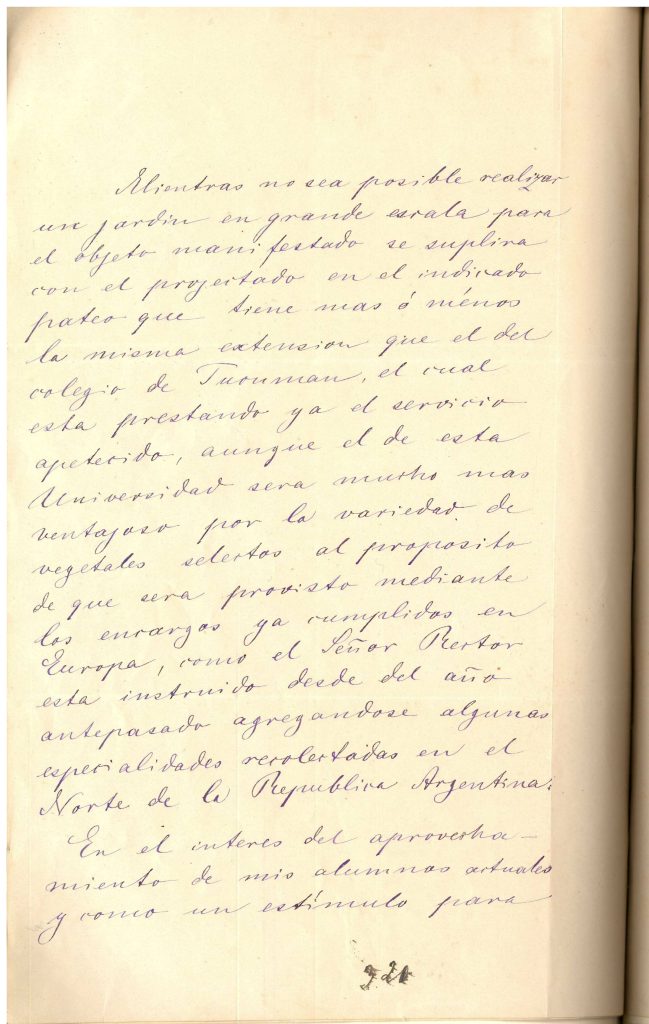 Mientras no sea posible realizar
un jardin en grande escala para
el objeto manifestado se suplira
con el projectado en el indicado
pateo que tiene mas ó ménos
la misma extension que el del
colegio de Tucuman, el cual
esta prestando ya el servicio
apetecido, aunque el de esta
Universidad sera mucho mas
ventajoso por la variedad de
vegetales selectos al proposito
de que sera provisto mediante
los encargos ya cumplidos en
Europa, como el Señor Rector
esta instruido desde del año
antepasado agregandose algunas
especialidades recolectadas en el
Norte de la Republica Argentina.
En el interes del aprovecha-
miento de mis alumnos actuales
y como un estímulo para